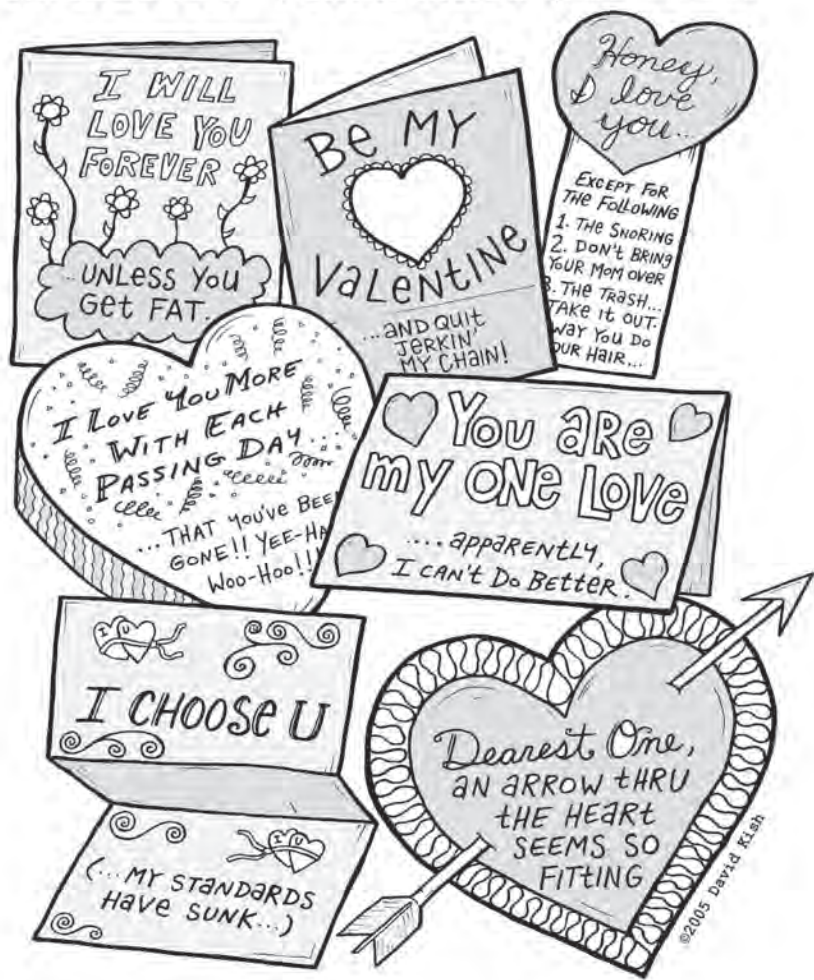 I WILL
LOVE YOU
FOREVER
...UNLESS YOU
GET FAT.
BE MY
VALENTINE
...AND QUIT
JERKIN'
MY CHAIN!
Honey,
I love
you...
EXCEPT FOR
THE FOLLOWING
1. THE SNORING
2. DON'T BRING
YOUR MOM OVER
3. THE TRASH...
TAKE IT OUT.
WAY YOU DO
OUR HAIR...
I LOVE YOU MORE
WITH EACH
PASSING DAY...
...THAT YOU'VE BEE
GONE!! YEE-HA
WOO-HOO!!!
YOU ARE
MY ONE LOVE
....APPARENTLY,
I CAN'T DO BETTER.
I U
I CHOOSE U
I U
(...MY STANDARDS
HAVE SUNK...)
Dearest One,
AN ARROW THRU
THE HEART
SEEMS SO
FITTING
©2005 David Kish